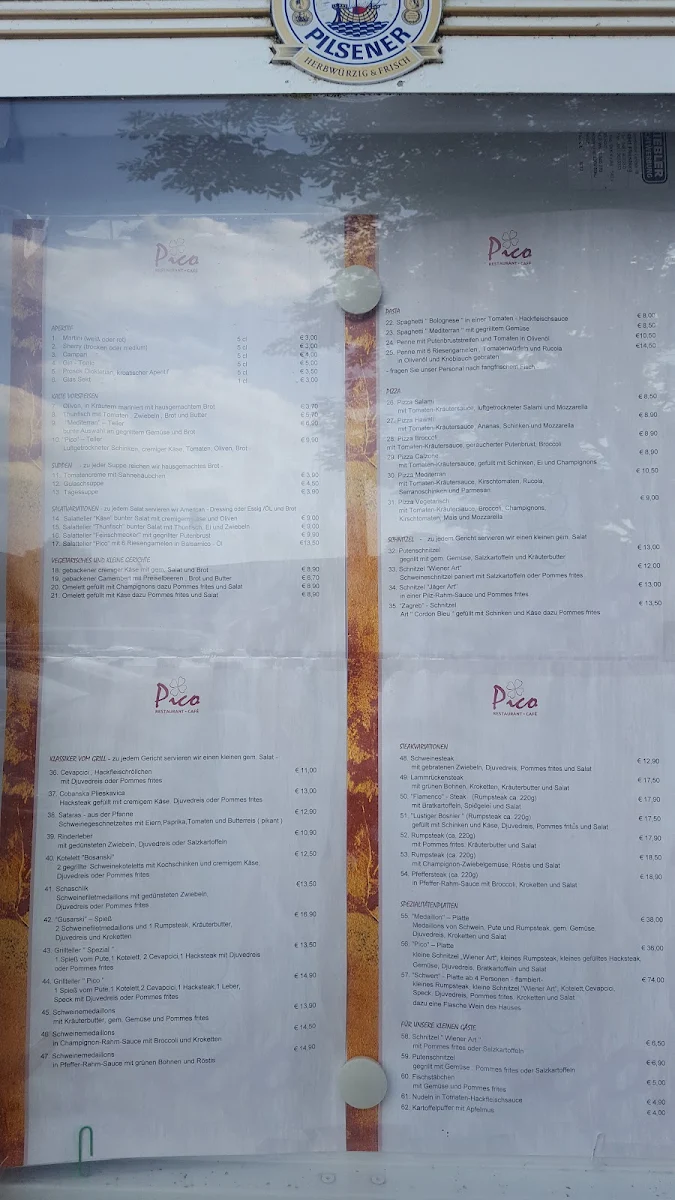 PILSENER
HERBWÜRZIG & FRISCH
Pico
RESTAURANT • CAFE
APERITIF
1. Martini (weiß oder rot) 5 cl € 3,00
2. Sherry (trocken oder medium) 5 cl
3. Campari 5 cl
4. Gin - Tonic 5 cl € 5,00
5 cl
6. Glas Sekt € 3,00
KALTE VORSPEISEN
Oliven, in Kräutern mariniert mit hausgemachtem Brot € 3,70
8. Thunfisch mit Tomaten, Zwiebeln, Brot und Butter € 5,70
9. "Mediterran" – Teller
bunte Auswahl an gegrilltem Gemüse und Brot
10. "Pico" – Teller € 9,90
Luftgetrockneter Schinken, cremiger Käse, Tomaten, Oliven, Brot
SUPPEN - zu jeder Suppe reichen wir hausgemachtes Brot
11. Tomatencreme mit Sahnehäubchen € 3,90
12. Gulaschsuppe € 4,50
13. Tagessuppe € 3,90
SALATVARIATIONEN - zu jedem Salat servieren wir American - Dressing oder Essig /Öl und Brot
14. Salatteller "Käse" bunter Salat mit cremigem Käse und Oliven € 9,00
15. Salatteller "Thunfisch" bunter Salat mit Thunfisch, Ei und Zwiebeln € 9,00
16. Salatteller "Feinschmecker" mit gegrillter Putenbrust € 9,90
17. Salatteller "Pico" mit 6 Riesengarnelen in Balsamico - Öl € 13,50
VEGETARISCHES UND KLEINE GERICHTE
18. gebackener cremiger Käse mit Salat und Brot € 8,90
19. gebackener Camembert mit Preiselbeeren, Brot und Butter € 8,70
20. Omelett gefüllt mit Champignons dazu Pommes frites und Salat € 8,90
21. Omelett gefüllt mit Käse dazu Pommes frites und Salat € 8,90
Pico
RESTAURANT • CAFE
PASTA
22. Spaghetti " Bolognese " in einer Tomaten - Hackfleischsauce € 8,00
23. Spaghetti " Mediterran " mit gegrilltem Gemüse € 8,50
24. Penne mit Putenbruststreifen und Tomaten in Olivenöl € 10,50
25. Penne mit 6 Riesengarnelen, Tomatenwürfen und Rucola € 14,50
in Olivenöl und Knoblauch gebraten
- fragen Sie unser Personal nach fangfrischem Fisch
PIZZA
26. Pizza Salami € 8,50
mit Tomaten-Kräutersauce, luftgetrockneter Salami und Mozzarella
27. Pizza Hawaii € 8,90
mit Tomaten-Kräutersauce, Ananas, Schinken und Mozzarella
28. Pizza Broccoli € 8,90
mit Tomaten-Kräutersauce, geräucherter Putenbrust, Broccoli
29. Pizza Calzone € 8,90
mit Tomaten-Kräutersauce, gefüllt mit Schinken, Ei und Champignons
30. Pizza Mediterran € 10,50
mit Tomaten-Kräutersauce, Kirschtomaten, Rucola,
Serranoschinken und Parmesan
31. Pizza Vegetarisch € 9,00
mit Tomaten-Kräutersauce, Broccoli, Champignons,
Kirschtomaten, Mais und Mozzarella
SCHNITZEL - zu jedem Gericht servieren wir einen kleinen gem. Salat
32. Putenschnitzel € 13,00
gegrillt mit gem. Gemüse, Salzkartoffeln und Kräuterbutter
33. Schnitzel "Wiener Art" € 12,00
Schweineschnitzel paniert mit Salzkartoffeln oder Pommes frites
34. Schnitzel "Jäger Art" € 13,00
in einer Pilz-Rahm-Sauce und Pommes frites
35. "Zagreb" - Schnitzel € 13,50
Art " Cordon Bleu " gefüllt mit Schinken und Käse dazu Pommes frites
Pico
RESTAURANT • CAFE
KLASSIKER VOM GRILL - zu jedem Gericht servieren wir einen kleinen gem. Salat -
36. Cevapcici, Hackfleischröllchen € 11,00
mit Djuvedreis oder Pommes frites
37. Cobanska Plieskavica € 13,00
Hacksteak gefüllt mit cremigem Käse, Djuvedreis oder Pommes frites
38. Sataras - aus der Pfanne € 12,90
Schweinegeschnetzeltes mit Eiern,Paprika,Tomaten und Butterreis ( pikant )
39. Rinderleber € 10,90
mit gedünsteten Zwiebeln, Djuvedreis oder Salzkartoffeln
40. Kotelett "Bosanski" € 12,50
2 gegrillte Schweinekoteletts mit Kochschinken und cremigem Käse,
Djuvedreis oder Pommes frites
41. Schaschlik € 13,50
Schweinefiletmedaillons mit gedünsteten Zwiebeln,
Djuvedreis oder Pommes frites
42. "Gusarski" – Spieß € 16,90
2 Schweinefiletmedaillons und 1 Rumpsteak, Kräuterbutter,
Djuvedreis und Kroketten
43. Grillteller " Spezial " € 13,50
1 Spieß vom Pute,1 Kotelett, 2 Cevapcici,1 Hacksteak mit Djuvedreis
oder Pommes frites
44. Grillteller " Pico " € 14,90
1 Spieß vom Pute,1 Kotelett,2 Cevapcici,1 Hacksteak,1 Leber,
Speck mit Djuvedreis oder Pommes frites
45. Schweinemedaillons € 13,90
mit Kräuterbutter, gem. Gemüse und Pommes frites
46. Schweinemedaillons € 14,50
in Champignon-Rahm-Sauce mit Broccoli und Kroketten
47. Schweinemedaillons € 14,90
in Pfeffer-Rahm-Sauce mit grünen Bohnen und Rösti
Pico
RESTAURANT • CAFE
STEAKVARIATIONEN
48. Schweinesteak € 12,90
mit gebratenen Zwiebeln, Djuvedreis, Pommes frites und Salat
49. Lammrückensteak € 17,50
mit grünen Bohnen, Kroketten, Kräuterbutter und Salat
50. "Flamenco" - Steak (Rumpsteak ca. 220g) € 17,90
mit Bratkartoffeln, Spiegelei und Salat
51. "Lustiger Bosnier " (Rumpsteak ca. 220g) € 17,50
gefüllt mit Schinken und Käse, Djuvedreis, Pommes frites und Salat
52. Rumpsteak (ca. 220g) € 17,90
mit Pommes frites, Kräuterbutter und Salat
53. Rumpsteak (ca. 220g) € 18,50
mit Champignon-Zwiebelgemüse, Röstis und Salat
54. Pfeffersteak (ca. 220g) € 18,90
in Pfeffer-Rahm-Sauce mit Broccoli, Kroketten und Salat
SPEZIALITÄTENPLATTEN
55. "Medaillon" – Platte € 38,00
Medaillons von Schwein, Pute und Rumpsteak, gem. Gemüse
Djuvedreis, Kroketten und Salat
56. "Pico" – Platte € 36,00
kleine Schnitzel „Wiener Art", kleines Rumpsteak, kleines gefülltes Hacksteak,
Gemüse, Djuvedreis, Bratkartoffeln und Salat
57. "Schwert" - Platte ab 4 Personen - flambiert- € 74,00
kleines Rumpsteak, kleine Schnitzel "Wiener Art", Kotelett,Cevapcici,
Speck, Djuvedreis, Pommes frites, Kroketten und Salat
dazu eine Flasche Wein des Hauses
FÜR UNSERE KLEINEN GÄSTE
58. Schnitzel " Wiener Art " € 6,50
mit Pommes frites oder Salzkartoffeln
59. Putenschnitzel € 6,90
gegrillt mit Gemüse, Pommes frites oder Salzkartoffeln
60. Fischstäbchen € 5,00
mit Gemüse und Pommes frites
61. Nudeln in Tomaten-Hackfleischsauce € 4,90
62. Kartoffelpuffer mit Apfelmus € 4,00